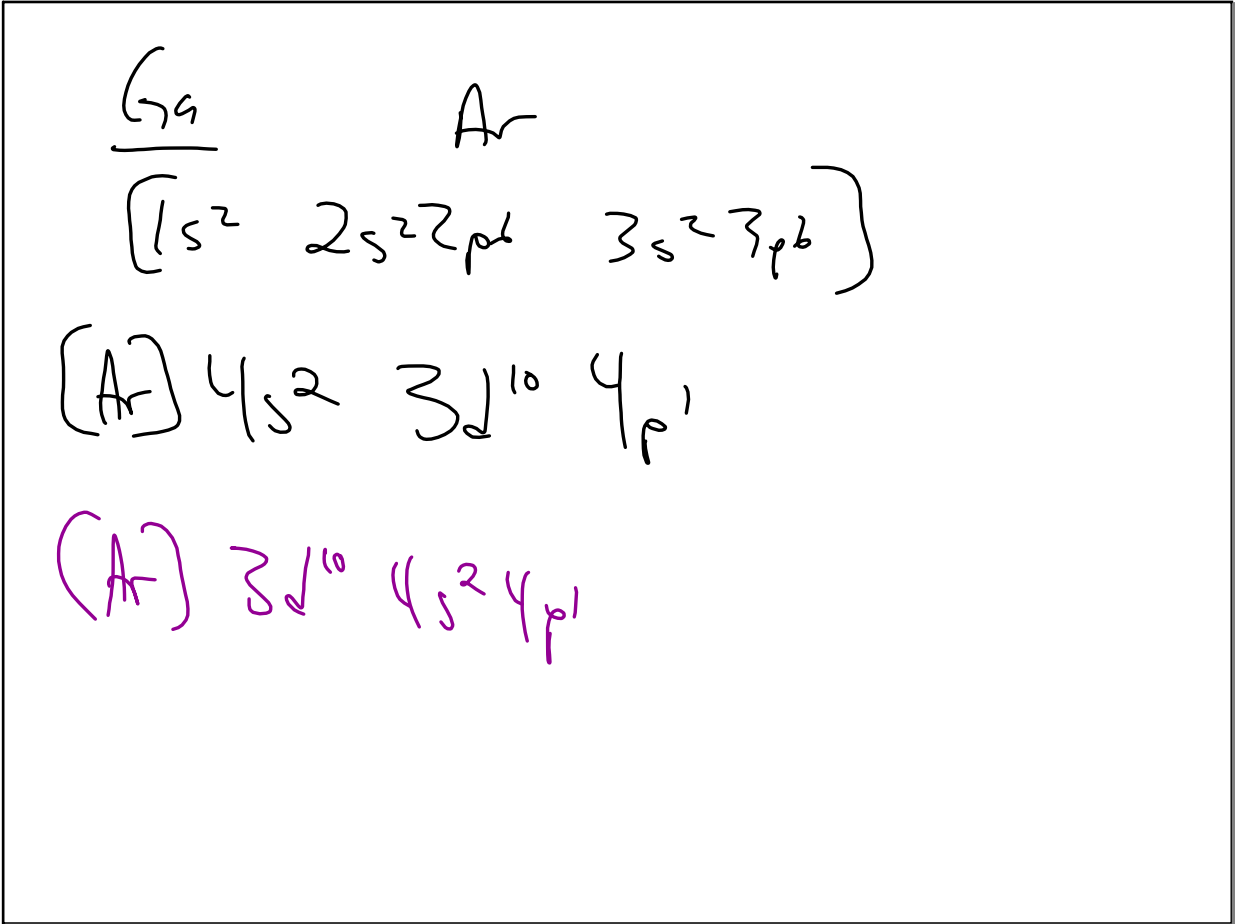 Ga Ar
[1s² 2s²2p⁶ 3s²3p⁶]
[Ar] 4s² 3d¹⁰ 4p¹
[Ar] 3d¹⁰ 4s²4p¹